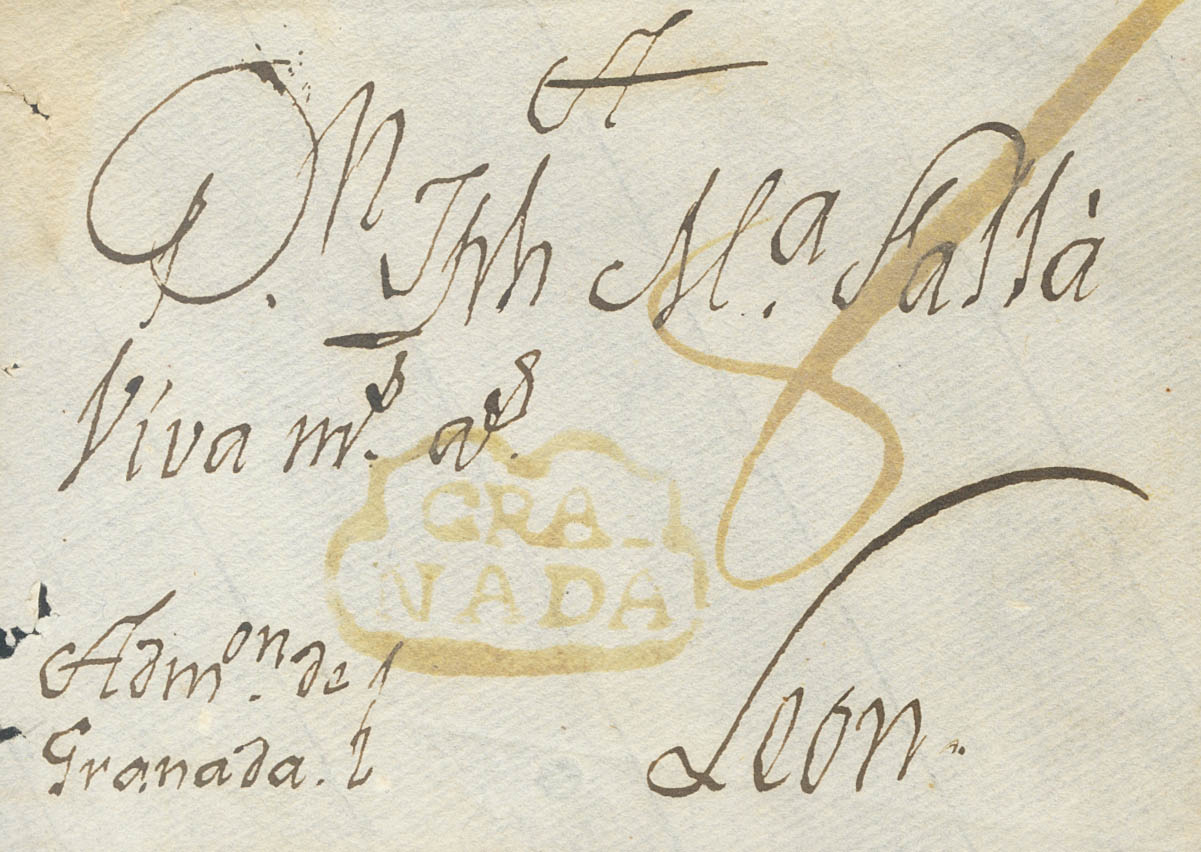 A
D.n Jph M.a Sallá
Viva m.s a.s
GRA-
NADA
Adm.on de
Granada.
Leon.
8